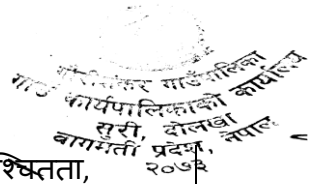 गौरीशंकर गाउँपालिका
गाउँ कार्यपालिकाको कार्यालय
सुरी, दोलखा
बागमती प्रदेश, नेपाल
२०७३
श्चितता,